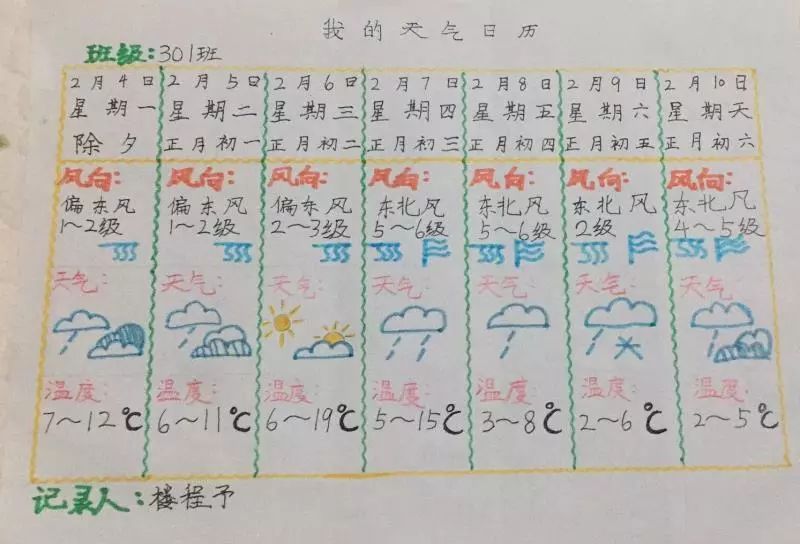 我的天气日历
班级:301班
2月4日 2月5日 2月6日 2月7日 2月8日 2月9日 2月10日
星期一 星期二 星期三 星期四 星期五 星期六 星期天
除夕 正月初一 正月初二 正月初三 正月初四 正月初五 正月初六
风向: 风向: 风向: 风向: 风向: 风向: 风向:
偏东风 偏东风 偏东风 东北风 东北风 东北风 东北风
1~2级 1~2级 2~3级 5~6级 5~6级 2级 4~5级
天气: 天气: 天气: 天气: 天气: 天气: 天气:
温度: 温度: 温度: 温度: 温度: 温度: 温度:
7~12℃ 6~11℃ 6~19℃ 5~15℃ 3~8℃ 2~6℃ 2~5℃
记录人:楼程予